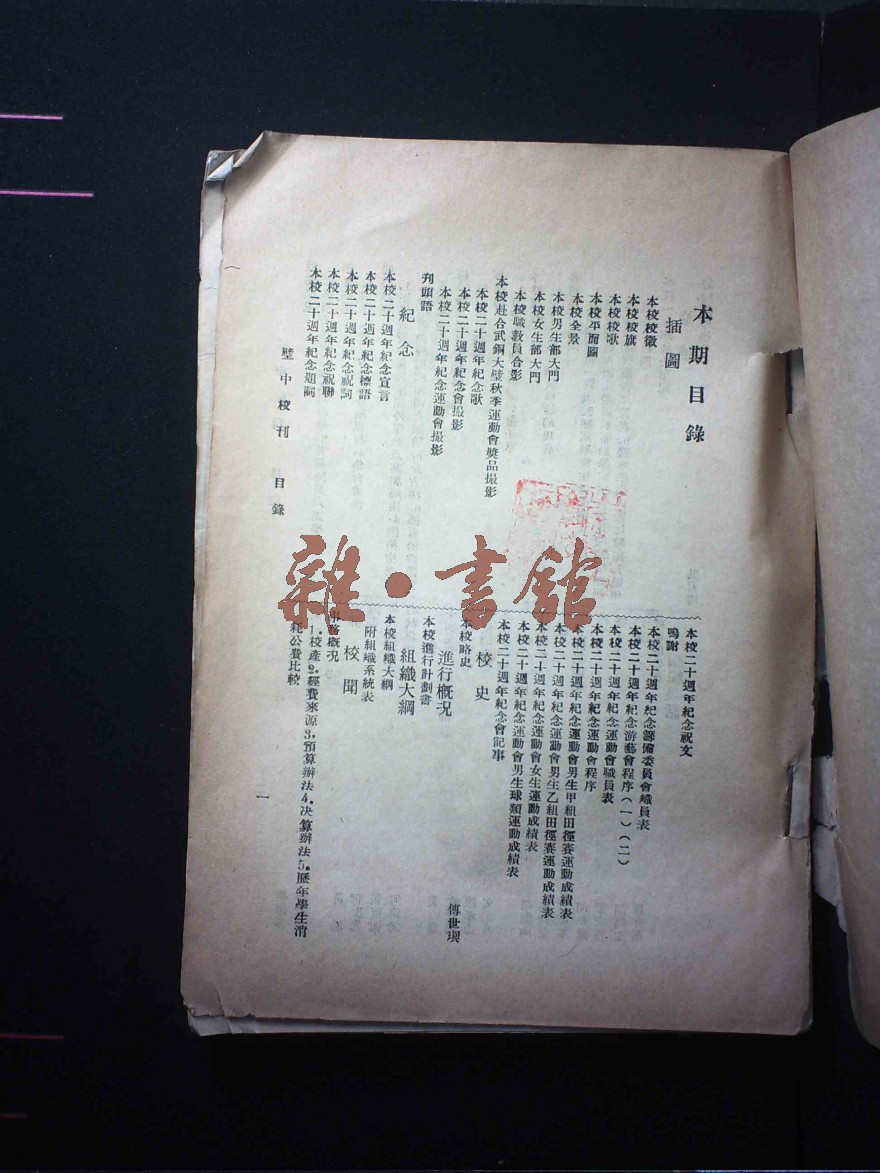 本期目錄
插圖
本校校徽
本校校旗
本校校歌
本校平面圖
本校全景
本校男生部大門
本校女生部大門
本校職教員合影
本校赴合武銅大璧秋季運動會獎品撮影
本校二十週年紀念歌
本校二十週年紀念會撮影
本校二十週年紀念運動會撮影
刋頭語
紀念
本校二十週年紀念宣言
本校二十週年紀念標語
本校二十週年紀念祝詞
本校二十週年紀念祝聯
本校二十週年紀念題詞
本校二十週年紀念祝文
鳴謝
本校二十週年紀念籌備委員會職員表
本校二十週年紀念游藝會程序(一)(二)
本校二十週年紀念運動會職員表
本校二十週年紀念運動會程序
本校二十週年紀念運動會男生甲組田徑賽運動成績表
本校二十週年紀念運動會男生乙組田徑賽運動成績表
本校二十週年紀念運動會女生運動成績表
本校二十週年紀念運動會男生球類運動成績表
本校二十週年紀念會記事
校史
本校略史 傅世
進行概況
本校進行計劃書
組織大綱
本校組織大綱
附組織系統表
校聞
概況
1.校產2.經費來源3.預算辦法4.決算辦法5.歷年學生消
耗公費比較
璧中校刊 目錄 一
雜·書館